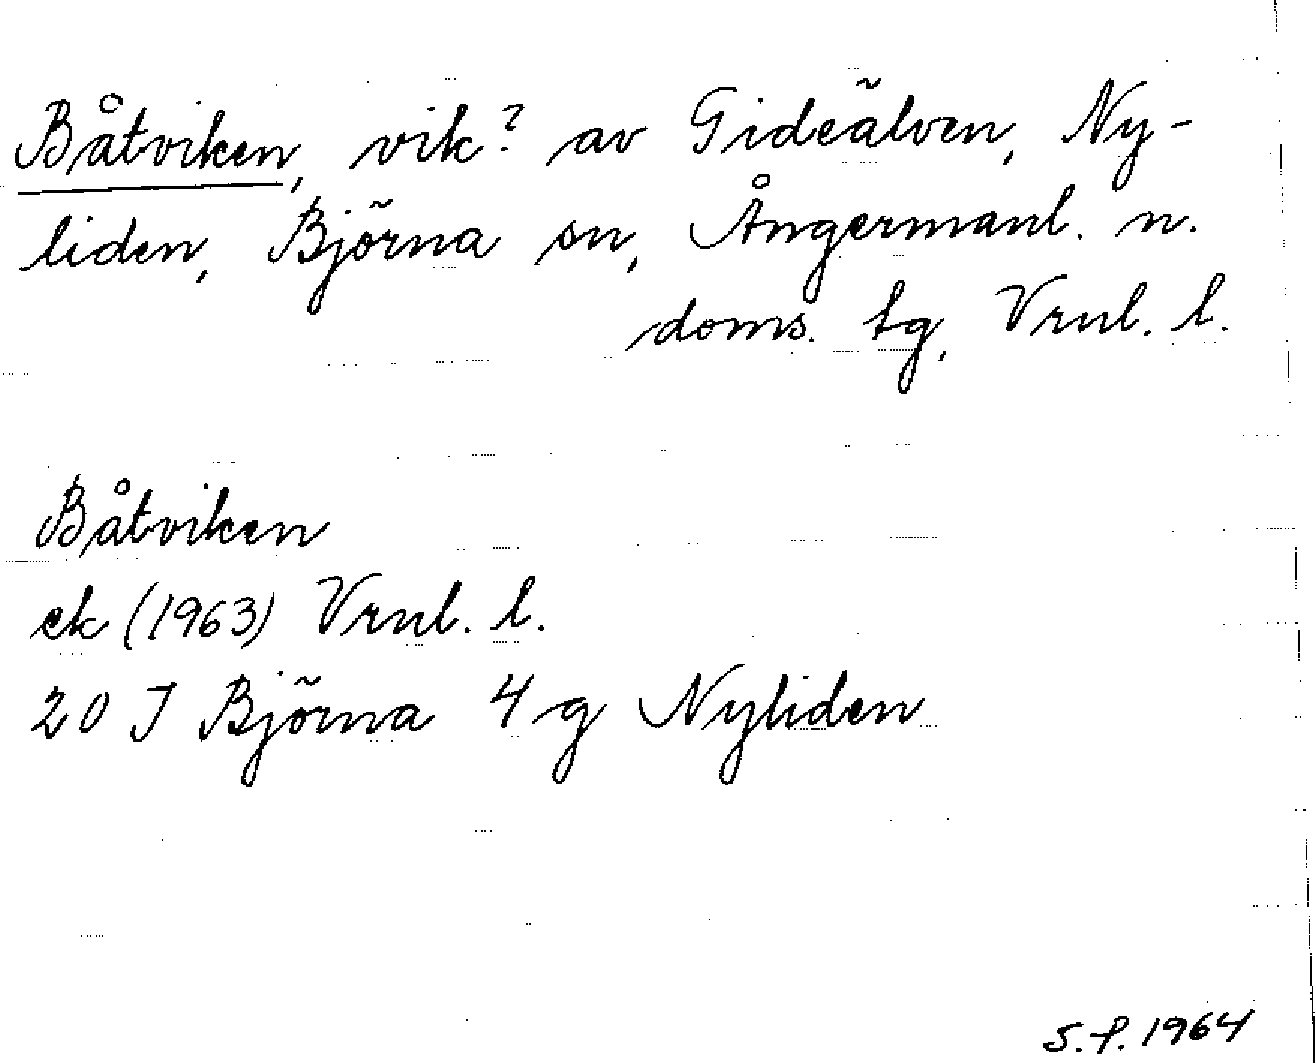 Båtviken, vik? av Gideälven, Ny-
liden, Björna sn, Ångermanl. n.
doms. tg, Vrnl. l.
Båtviken
ek (1963) Vrnl. l.
20 J Björna 4 g Nyliden
S.P. 1964